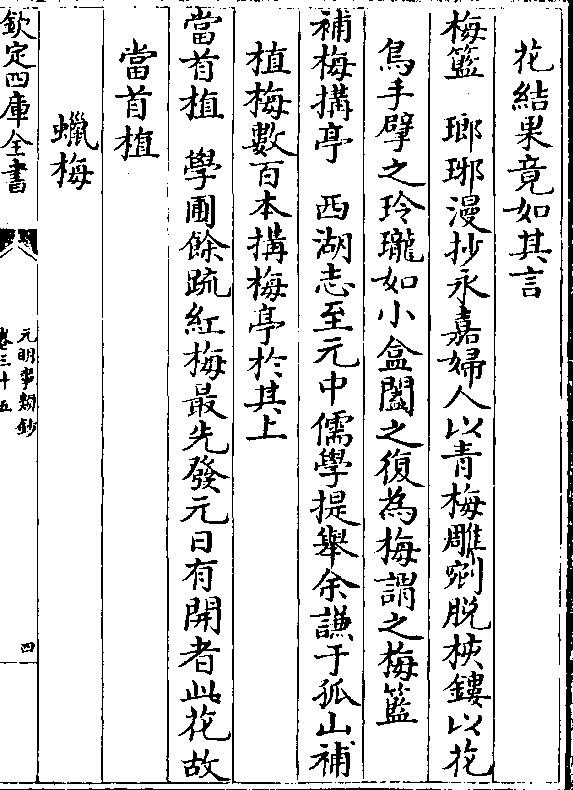 花結果竟如其言
梅籃　瑯琊漫抄永嘉婦人以青梅雕剜脱核鏤以花
鳥手擘之玲瓏如小盒闔之復為梅謂之梅籃
補梅搆亭　西湖志至元中儒學提舉余謙于孤山補
植梅數百本搆梅亭於其上
當首植　學圃餘疏紅梅最先發元日有開者此花故
當首植
蠟梅
欽定四庫全書
元明事類鈔
卷三十五
四